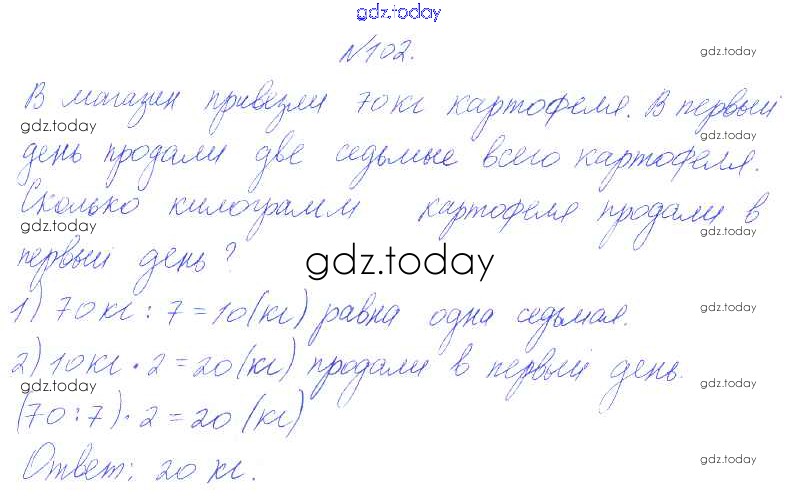 gdz.today
№102.
gdz.today
В магазин привезли 70 кг картофеля. В первый
gdz.today
gdz.today
день продали две седьмые всего картофеля.
gdz.today
Сколько килограмм картофеля продали в
gdz.today
gdz.today
первый день?
gdz.today
1) 70 кг : 7 = 10 (кг) равна одна седьмая.
gdz.today
2) 10 кг · 2 = 20 (кг) продали в первый день.
gdz.today
gdz.today
(70 : 7) · 2 = 20 (кг)
Ответ: 20 кг.
gdz.today